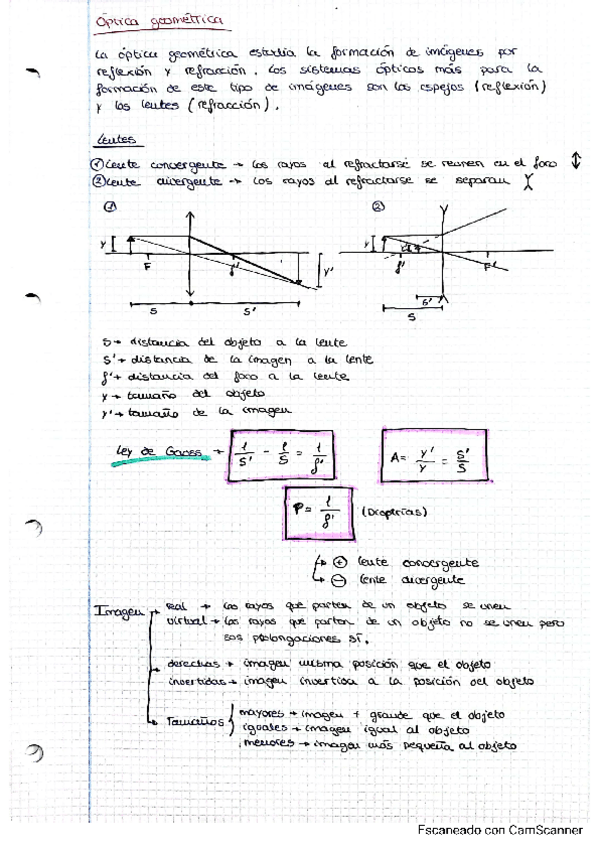 Óptica geométrica
La óptica geométrica estudia la formación de imágenes por
reflexión y refracción. Los sistemas ópticos más para la
formación de este tipo de imágenes son los espejos (reflexión)
y los lentes (refracción).
Lentes
① Lente convergente → Los rayos al refractarse se reunen en el foco
② Lente divergente → Los rayos al refractarse se separan
①
②
y
F
f'
y'
S
S'
y
f'
F'
S'
S
S → distancia del objeto a la lente
S' → distancia de la imagen a la lente
f' → distancia del foco a la lente
y → tamaño del objeto
y' → tamaño de la imagen
Ley de Gauss → 1/S' - 1/S = 1/f'
A = y'/y = S'/S
P = 1/f' (Dioptrías)
⊕ lente convergente
⊖ lente divergente
Imagen → real → Los rayos que parten de un objeto se unen
virtual → Los rayos que parten de un objeto no se unen pero
sus prolongaciones sí.
derechas → imagen misma posición que el objeto
invertidas → imagen invertida a la posición del objeto
Tamaños
mayores → imagen + grande que el objeto
iguales → imagen igual al objeto
menores → imagen más pequeña al objeto
Escaneado con CamScanner